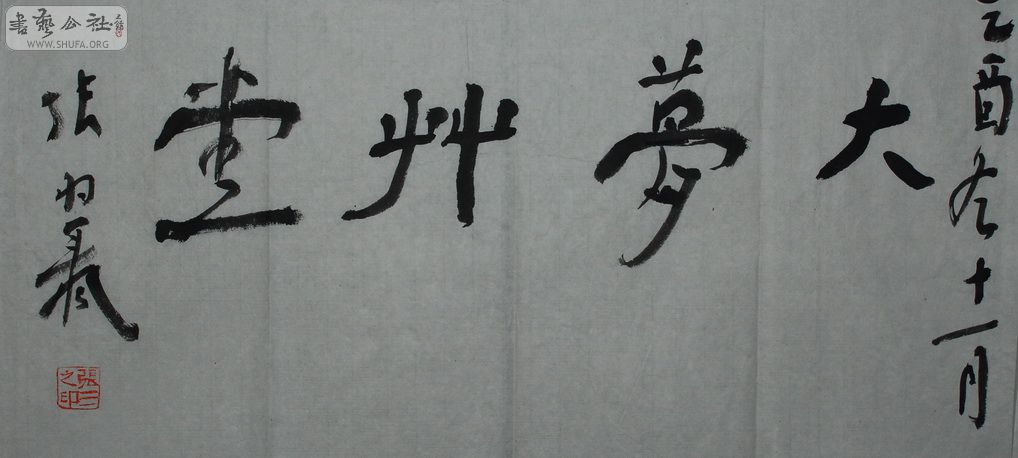 乙酉冬十一月
大夢艸堂
張羽翼
張三之印
書藝公社
WWW.SHUFA.ORG